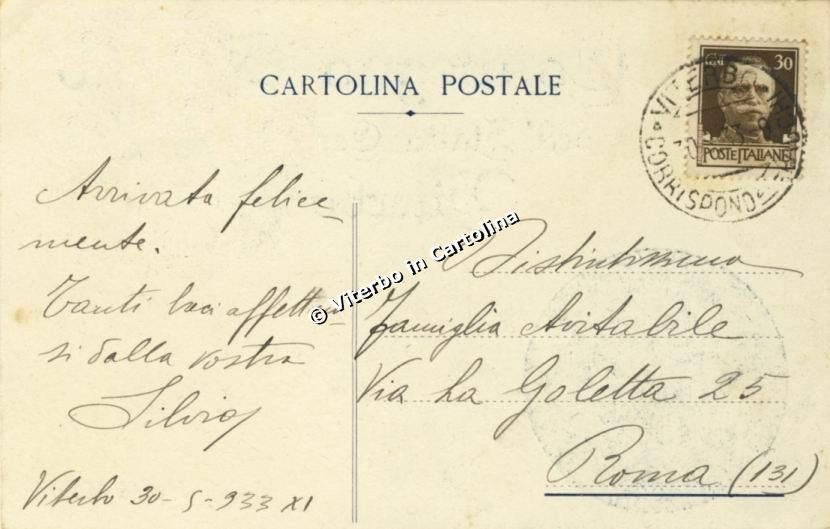 CARTOLINA POSTALE
30
POSTE ITALIANE
VITERBO
CORRISPOND
Arrivata felice-
mente.
Tanti baci affettuo-
si dalla vostra
Silvia
Viterbo 30-5-933 XI
© Viterbo in Cartolina
Distintissima
famiglia Avitabile
Via La Goletta 25
Roma (131)